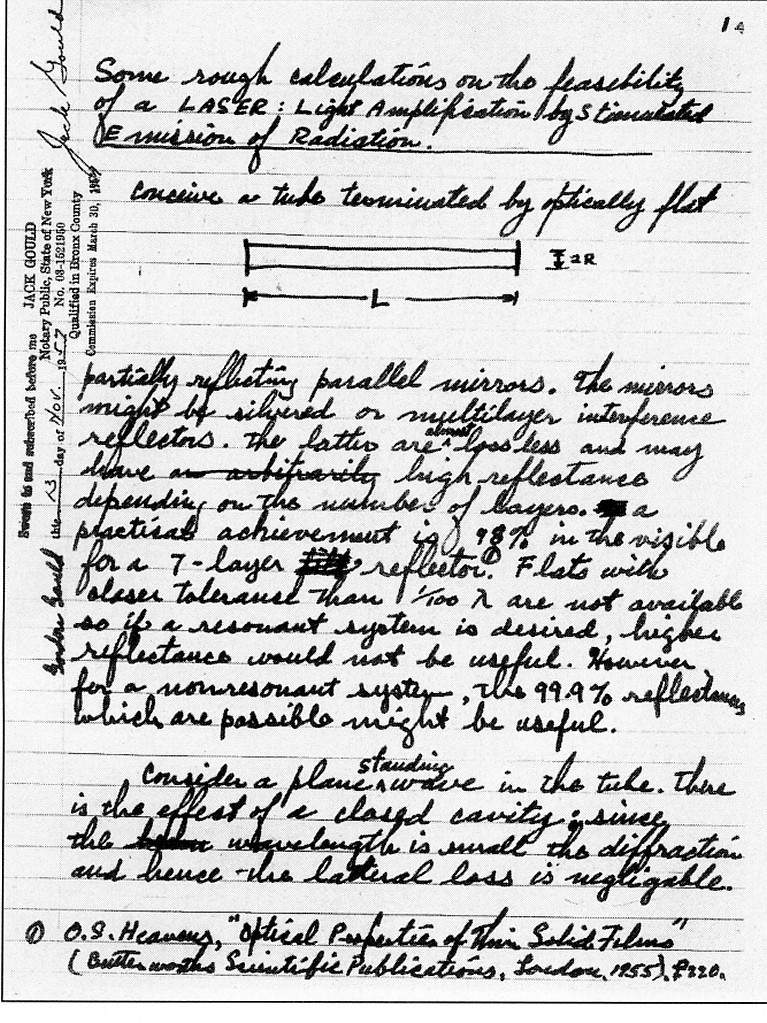 1
Some rough calculations on the feasibility
of a LASER: Light Amplification by Stimulated
Emission of Radiation.
Conceive a tube terminated by optically flat
2R
L
partially reflecting parallel mirrors. The mirrors
might be silvered or multilayer interference
reflectors. The latter are almost lossless and may
have an arbitrarily high reflectance
depending on the number of layers. a
practical achievement is 98% in the visible
for a 7-layer reflector.① Flats with
closer tolerance than 1/100 λ are not available
so if a resonant system is desired, higher
reflectance would not be useful. However,
for a nonresonant system, the 99.9% reflectances
which are possible might be useful.
Consider a plane standing wave in the tube. There
is the effect of a closed cavity; since
the wavelength is small the diffraction
and hence the lateral loss is negligable.
① O.S. Heavens, "Optical Properties of Thin Solid Films"
(Butterworths Scientific Publications, London, 1955). P220.
Sworn to and subscribed before me
this 13 day of Nov. 1957
JACK GOULD
Notary Public, State of New York
No. 03-1521950
Qualified in Bronx County
Commission Expires March 30, 19
Jack Gould
Gordon Gould